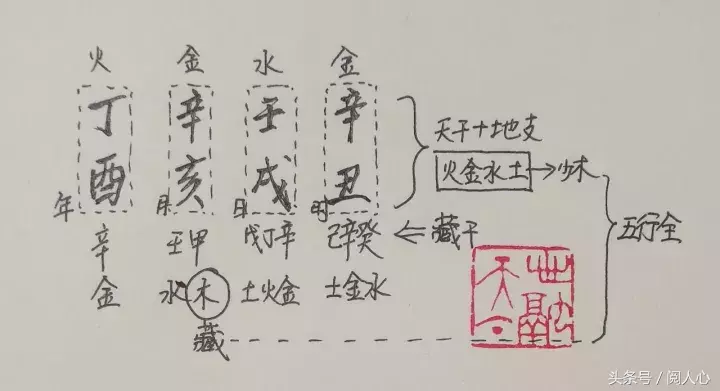 火 金 水 金
丁 辛 壬 辛
酉 亥 戌 丑
年 月 日 时
天干十地支
火金水土→少木
五行全
辛 壬甲 戊丁辛 己辛癸 ⇐藏干
金 水木 土火金 土金水
藏
头条号 / 阅人心